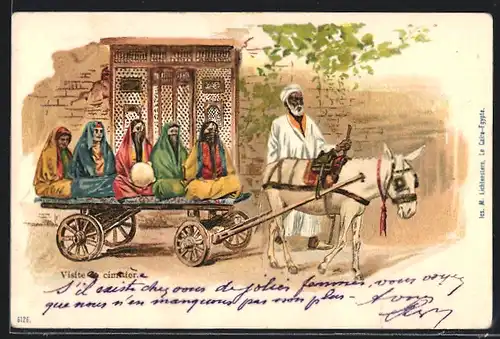 Visite cimitier.
S'il existe chez vous de jolies femmes, vous voyez
que nous n'en manquons pas non plus -
6126.
M. Lichtenstern, Le Caire-Egypte.